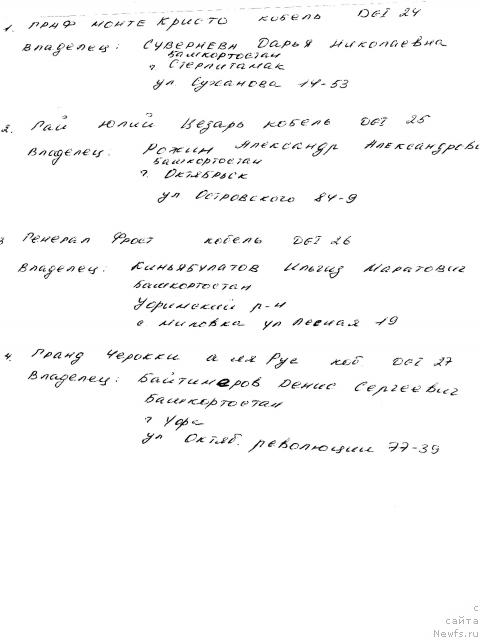 1. Граф Монте Кристо кобель DGI 24
Владелец: Сувернева Дарья Николаевна
Башкортостан
г. Стерлитамак
ул Сужанова 14-53
2. Гай Юлий Цезарь кобель DGI 25
Владелец: Рожин Александр Александрови
Башкортостан
г. Октябрьск
ул Островского 84-9
3 Генерал Фрост кобель DGI 26
Владелец: Киньябулатов Ильгиз Маратович
Башкортостан
Уфимский р-н
с Миловка ул Лесная 19
4. Гранд Черокки а ля Рус коб DGI 27
Владелец: Байтимеров Денис Сергеевич
Башкортостан
г Уфа
ул Октяб. революции 77-39
с
сайта
Newfs.ru